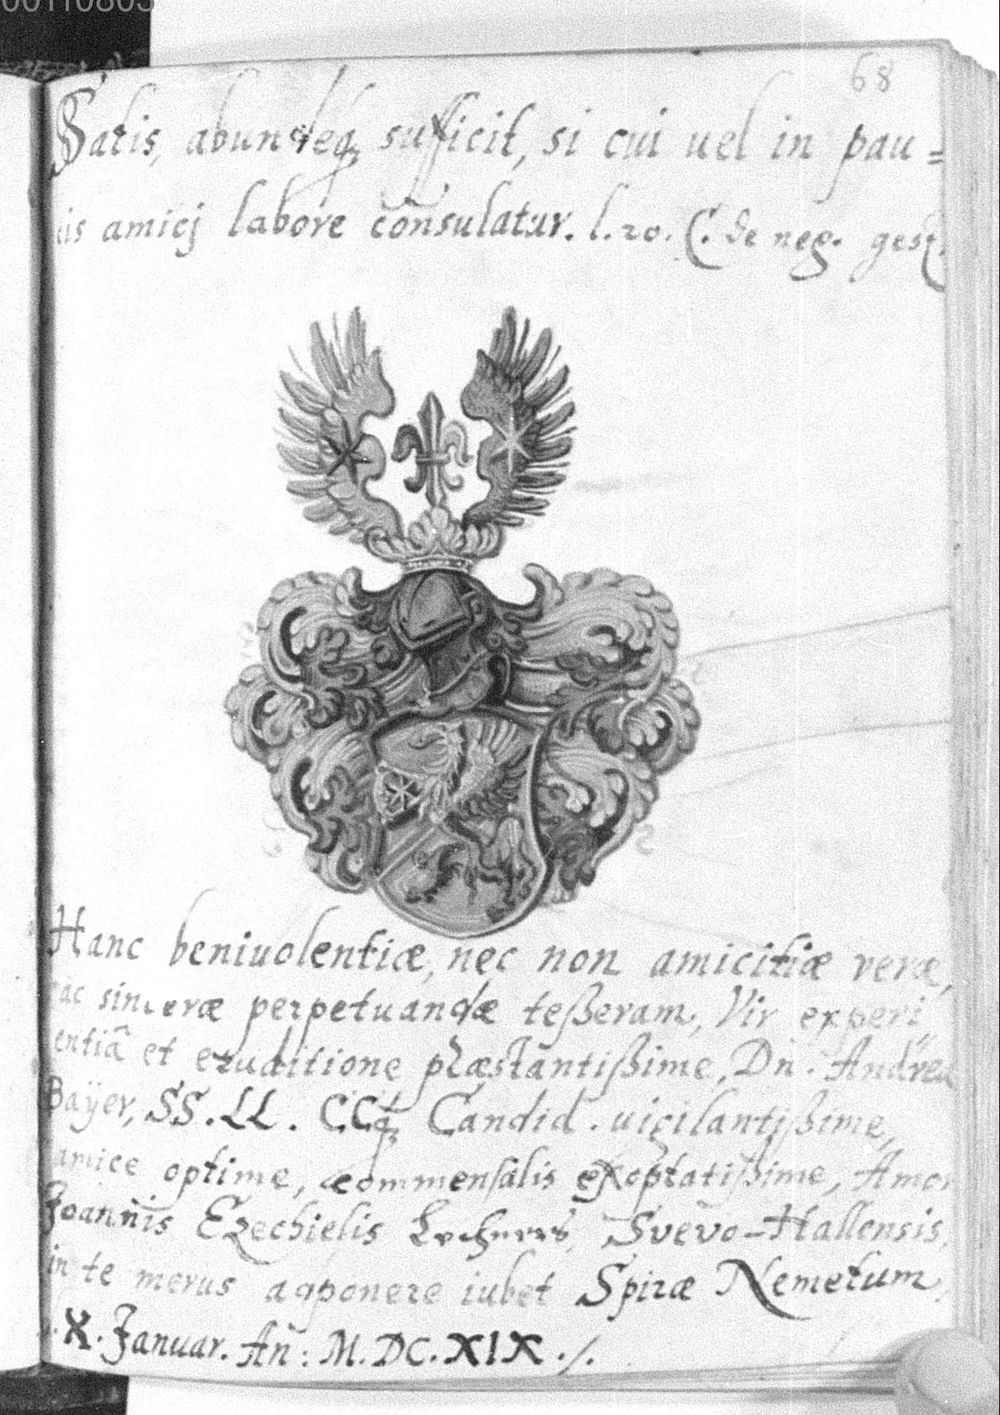 00110803
68
Satis, abundeq; sufficit, si cui uel in pau=
cis amicj labore consulatur. l. 20. C. de neg. gest.
Hanc beniuolentiæ, nec non amicitiæ veræ,
ac sinceræ perpetuandæ teßeram, Vir experi
entiâ et eruditione præstantißime, Dn. Andrea
Baÿer, SS. LL. CCq; Candid. uigilantißime,
amice optime, commensalis exoptatißime, Amor
Joannis Ezechielis Svevo-Hallensis,
in te merus apponere iubet Spiræ Nemetum,
X. Januar. An: M. DC. XIX ./.